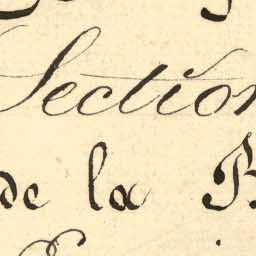 Section
de la B